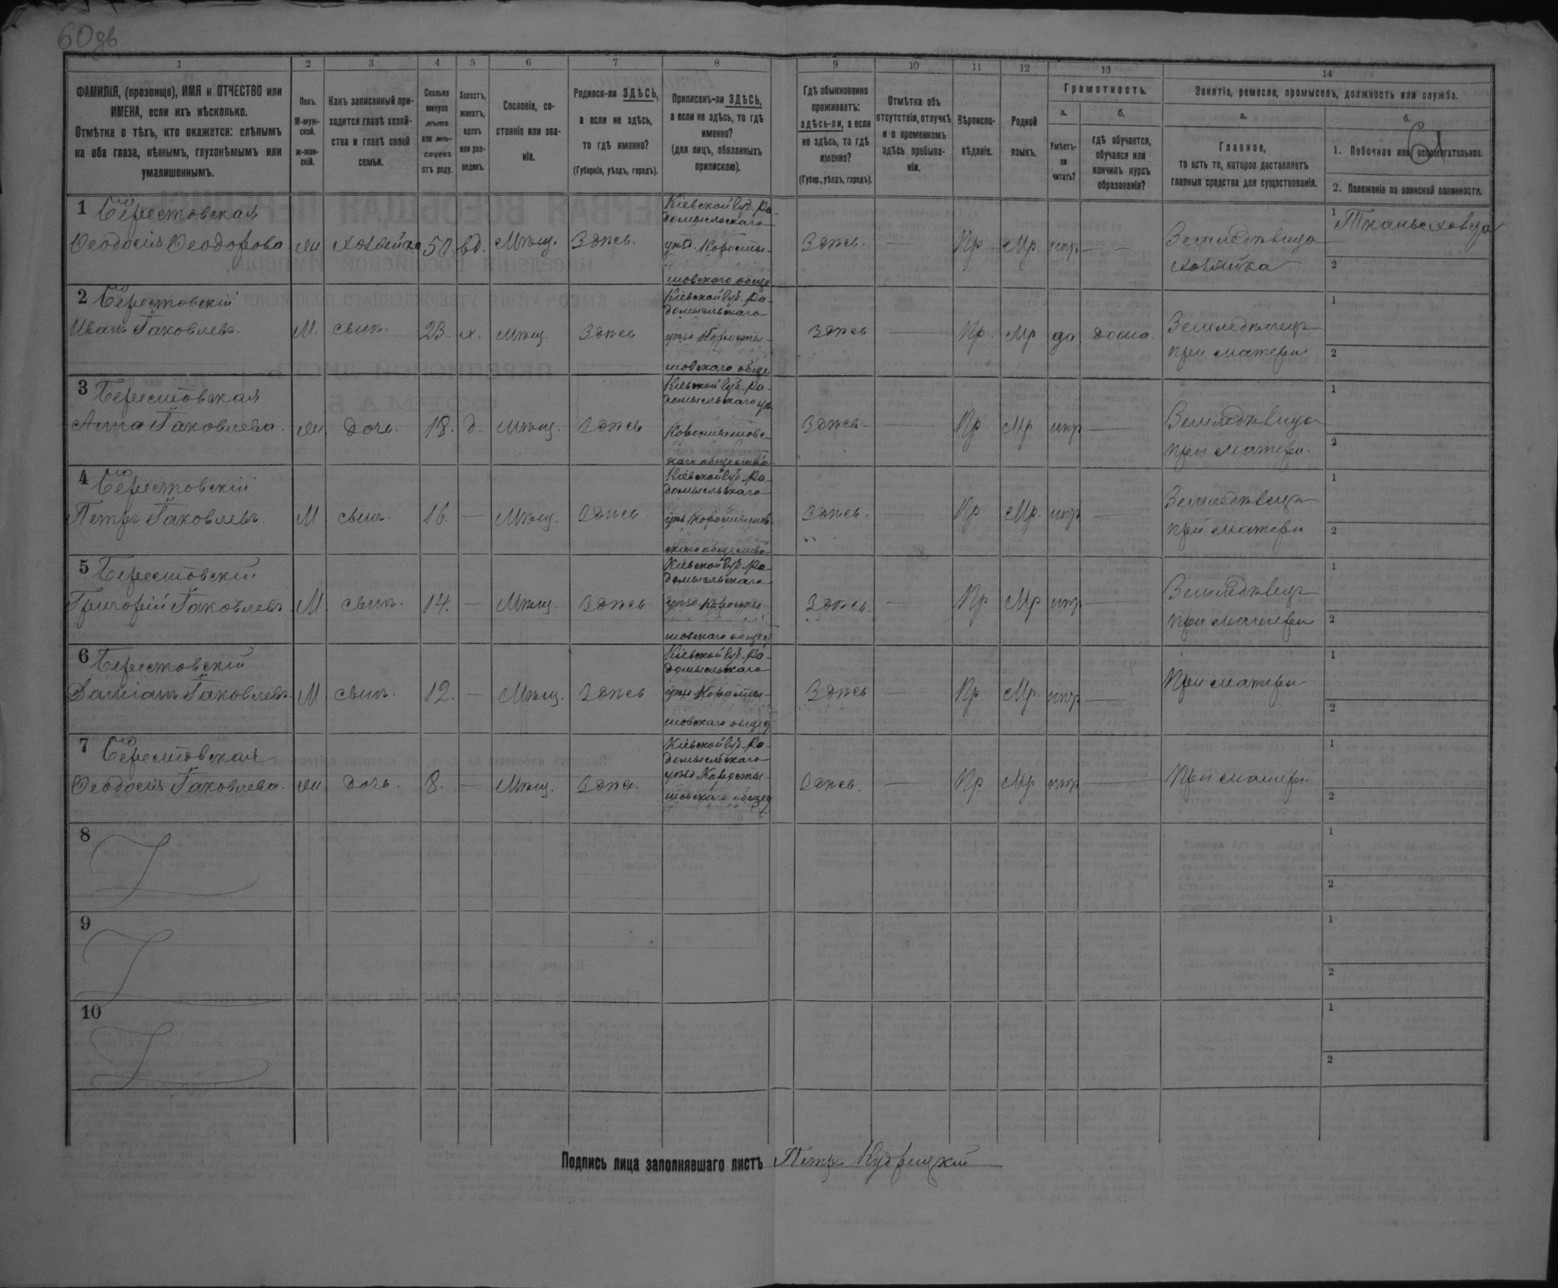 60об
61
1 2 3 4 5 6 7 8 9 10 11 12 13 14
ФАМИЛІЯ, (прозвище), ИМЯ и ОТЧЕСТВО или
ИМЕНА, если ихъ нѣсколько.
Отмѣтка о тѣхъ, кто окажется: слѣпымъ
на оба глаза, нѣмымъ, глухонѣмымъ или
умалишеннымъ.
Полъ.
М-муж-
ской.
ж-жен-
скій.
Какъ записанный при-
ходится главѣ хозяй-
ства и главѣ своей
семьи.
Сколько
минуло
лѣтъ
или мѣ-
сяцевъ
отъ роду.
Холостъ,
женатъ,
вдовъ
или раз-
веденъ.
Сословіе, со-
стояніе или зва-
ніе.
Родился-ли ЗДѢСЬ,
а если не здѣсь,
то гдѣ именно?
(Губернія, уѣздъ, городъ).
Приписанъ-ли ЗДѢСЬ,
а если не здѣсь, то гдѣ
именно?
(для лицъ, обязанныхъ
припискою).
Гдѣ обыкновенно
проживаетъ:
здѣсь-ли, а если
не здѣсь, то гдѣ
именно?
(Губер., уѣздъ, городъ).
Отмѣтка объ
отсутствіи, отлучкѣ
и о временномъ
здѣсь пребыва-
ніи.
Вѣроиспо-
вѣданіе.
Родной
языкъ.
Грамотность.
а.
Умѣетъ-
ли
читать?
б.
гдѣ обучается,
обучался или
кончилъ курсъ
образованія?
Занятіе, ремесло, промыселъ, должность или служба.
а.
Главное,
то есть то, которое доставляетъ
главныя средства для существованія.
б.
1. Побочное или вспомогательное.
2. Положеніе по воинской повинности.
1 Берестовская
Ѳеодосія Ѳеодорова
хозяйка
50
вд.
Мѣщ.
Здѣсь
Кіевской губ. Ра-
домысльскаго
уѣзд. Коросты-
шовскаго обще
Здѣсь
—
Пр
Мр.
нѣр
—
Земледѣлица
хозяйка
1
2
2 Берестовскій
Иванъ Яковлевъ
М.
сынъ.
23.
х.
Мѣщ.
Здѣсь
Кіевской губ. Ра-
домысльскаго
Коросты-
шовскаго обще
Здѣсь
—
Пр.
Мр
да
дома.
Земледѣлецъ
при матери
1
2
3 Берестовская
Анна Яковлева
дочь.
18.
д.
Мѣщ.
Здѣсь
Кіевской губ. Ра-
домысльскаго
Коростышовс-
каго общества
Здѣсь
—
Пр
Мр
нѣр
—
Земледѣлица
при матери.
1
2
4 Берестовскій
Петръ Яковлевъ
М
сынъ.
16.
—
Мѣщ.
Здѣсь
Кіевской губ. Ра-
домысльскаго
Здѣсь.
—
Пр
Мр.
нѣр
—
Земледѣлецъ
при матери
1
2
5 Берестовскій
Григорій Яковлевъ
М
сынъ.
14.
—
Мѣщ.
Здѣсь
Кіевской губ. Ра-
домысльскаго
Коросты-
шовскаго общес
Здѣсь.
—
Пр
Мр
нѣр
—
Земледѣлецъ
при матери
1
2
6 Берестовскій
Даміанъ Яковлевъ
М
сынъ.
12.
—
Мѣщ.
Здѣсь
Кіевской губ. Ра-
домысльскаго
Коросты-
шовскаго общес
Здѣсь
—
Пр.
Мр.
нѣр
—
При матери
1
2
7 Берестовская
Ѳеодосія Яковлева.
дочь.
8.
—
Мѣщ.
Здѣсь.
Кіевской губ. Ра-
домысльскаго
Коросты-
шовскаго общес
Здѣсь.
—
Пр
Мр.
нѣр
—
При матери.
1
2
8
1
2
9
1
2
10
1
2
Подпись лица заполнявшаго листъ Петръ